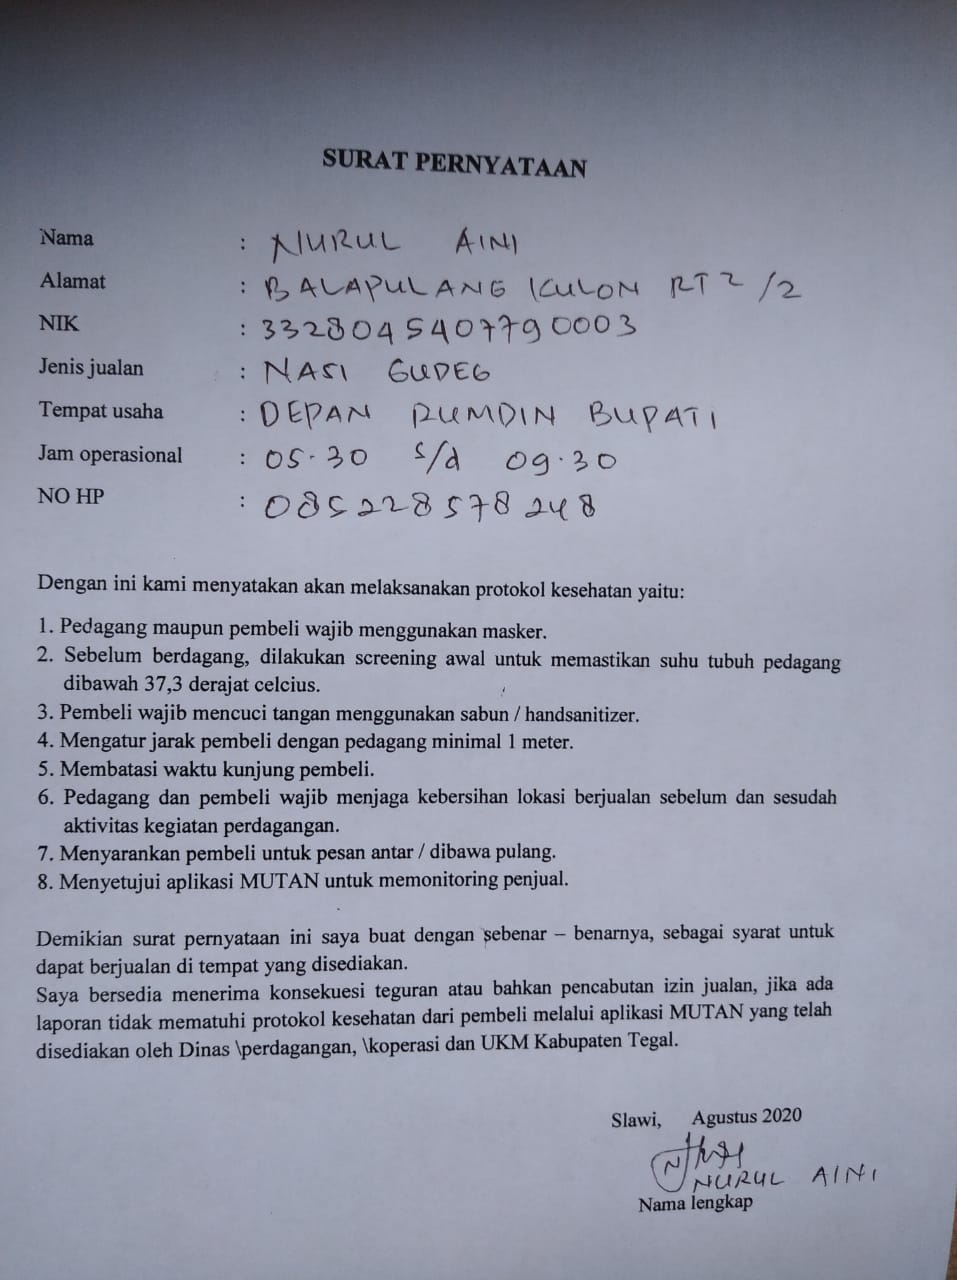 SURAT PERNYATAAN
Nama : NURUL AINI
Alamat : BALAPULANG KULON RT 2 /2
NIK : 3328045407790003
Jenis jualan : NASI GUDEG
Tempat usaha : DEPAN RUMDIN BUPATI
Jam operasional : 05.30 s/d 09.30
NO HP : 085228578248
Dengan ini kami menyatakan akan melaksanakan protokol kesehatan yaitu:
1. Pedagang maupun pembeli wajib menggunakan masker.
2. Sebelum berdagang, dilakukan screening awal untuk memastikan suhu tubuh pedagang
dibawah 37,3 derajat celcius.
3. Pembeli wajib mencuci tangan menggunakan sabun / handsanitizer.
4. Mengatur jarak pembeli dengan pedagang minimal 1 meter.
5. Membatasi waktu kunjung pembeli.
6. Pedagang dan pembeli wajib menjaga kebersihan lokasi berjualan sebelum dan sesudah
aktivitas kegiatan perdagangan.
7. Menyarankan pembeli untuk pesan antar / dibawa pulang.
8. Menyetujui aplikasi MUTAN untuk memonitoring penjual.
Demikian surat pernyataan ini saya buat dengan sebenar – benarnya, sebagai syarat untuk
dapat berjualan di tempat yang disediakan.
Saya bersedia menerima konsekuesi teguran atau bahkan pencabutan izin jualan, jika ada
laporan tidak mematuhi protokol kesehatan dari pembeli melalui aplikasi MUTAN yang telah
disediakan oleh Dinas \perdagangan, \koperasi dan UKM Kabupaten Tegal.
Slawi, Agustus 2020
NURUL AINI
Nama lengkap